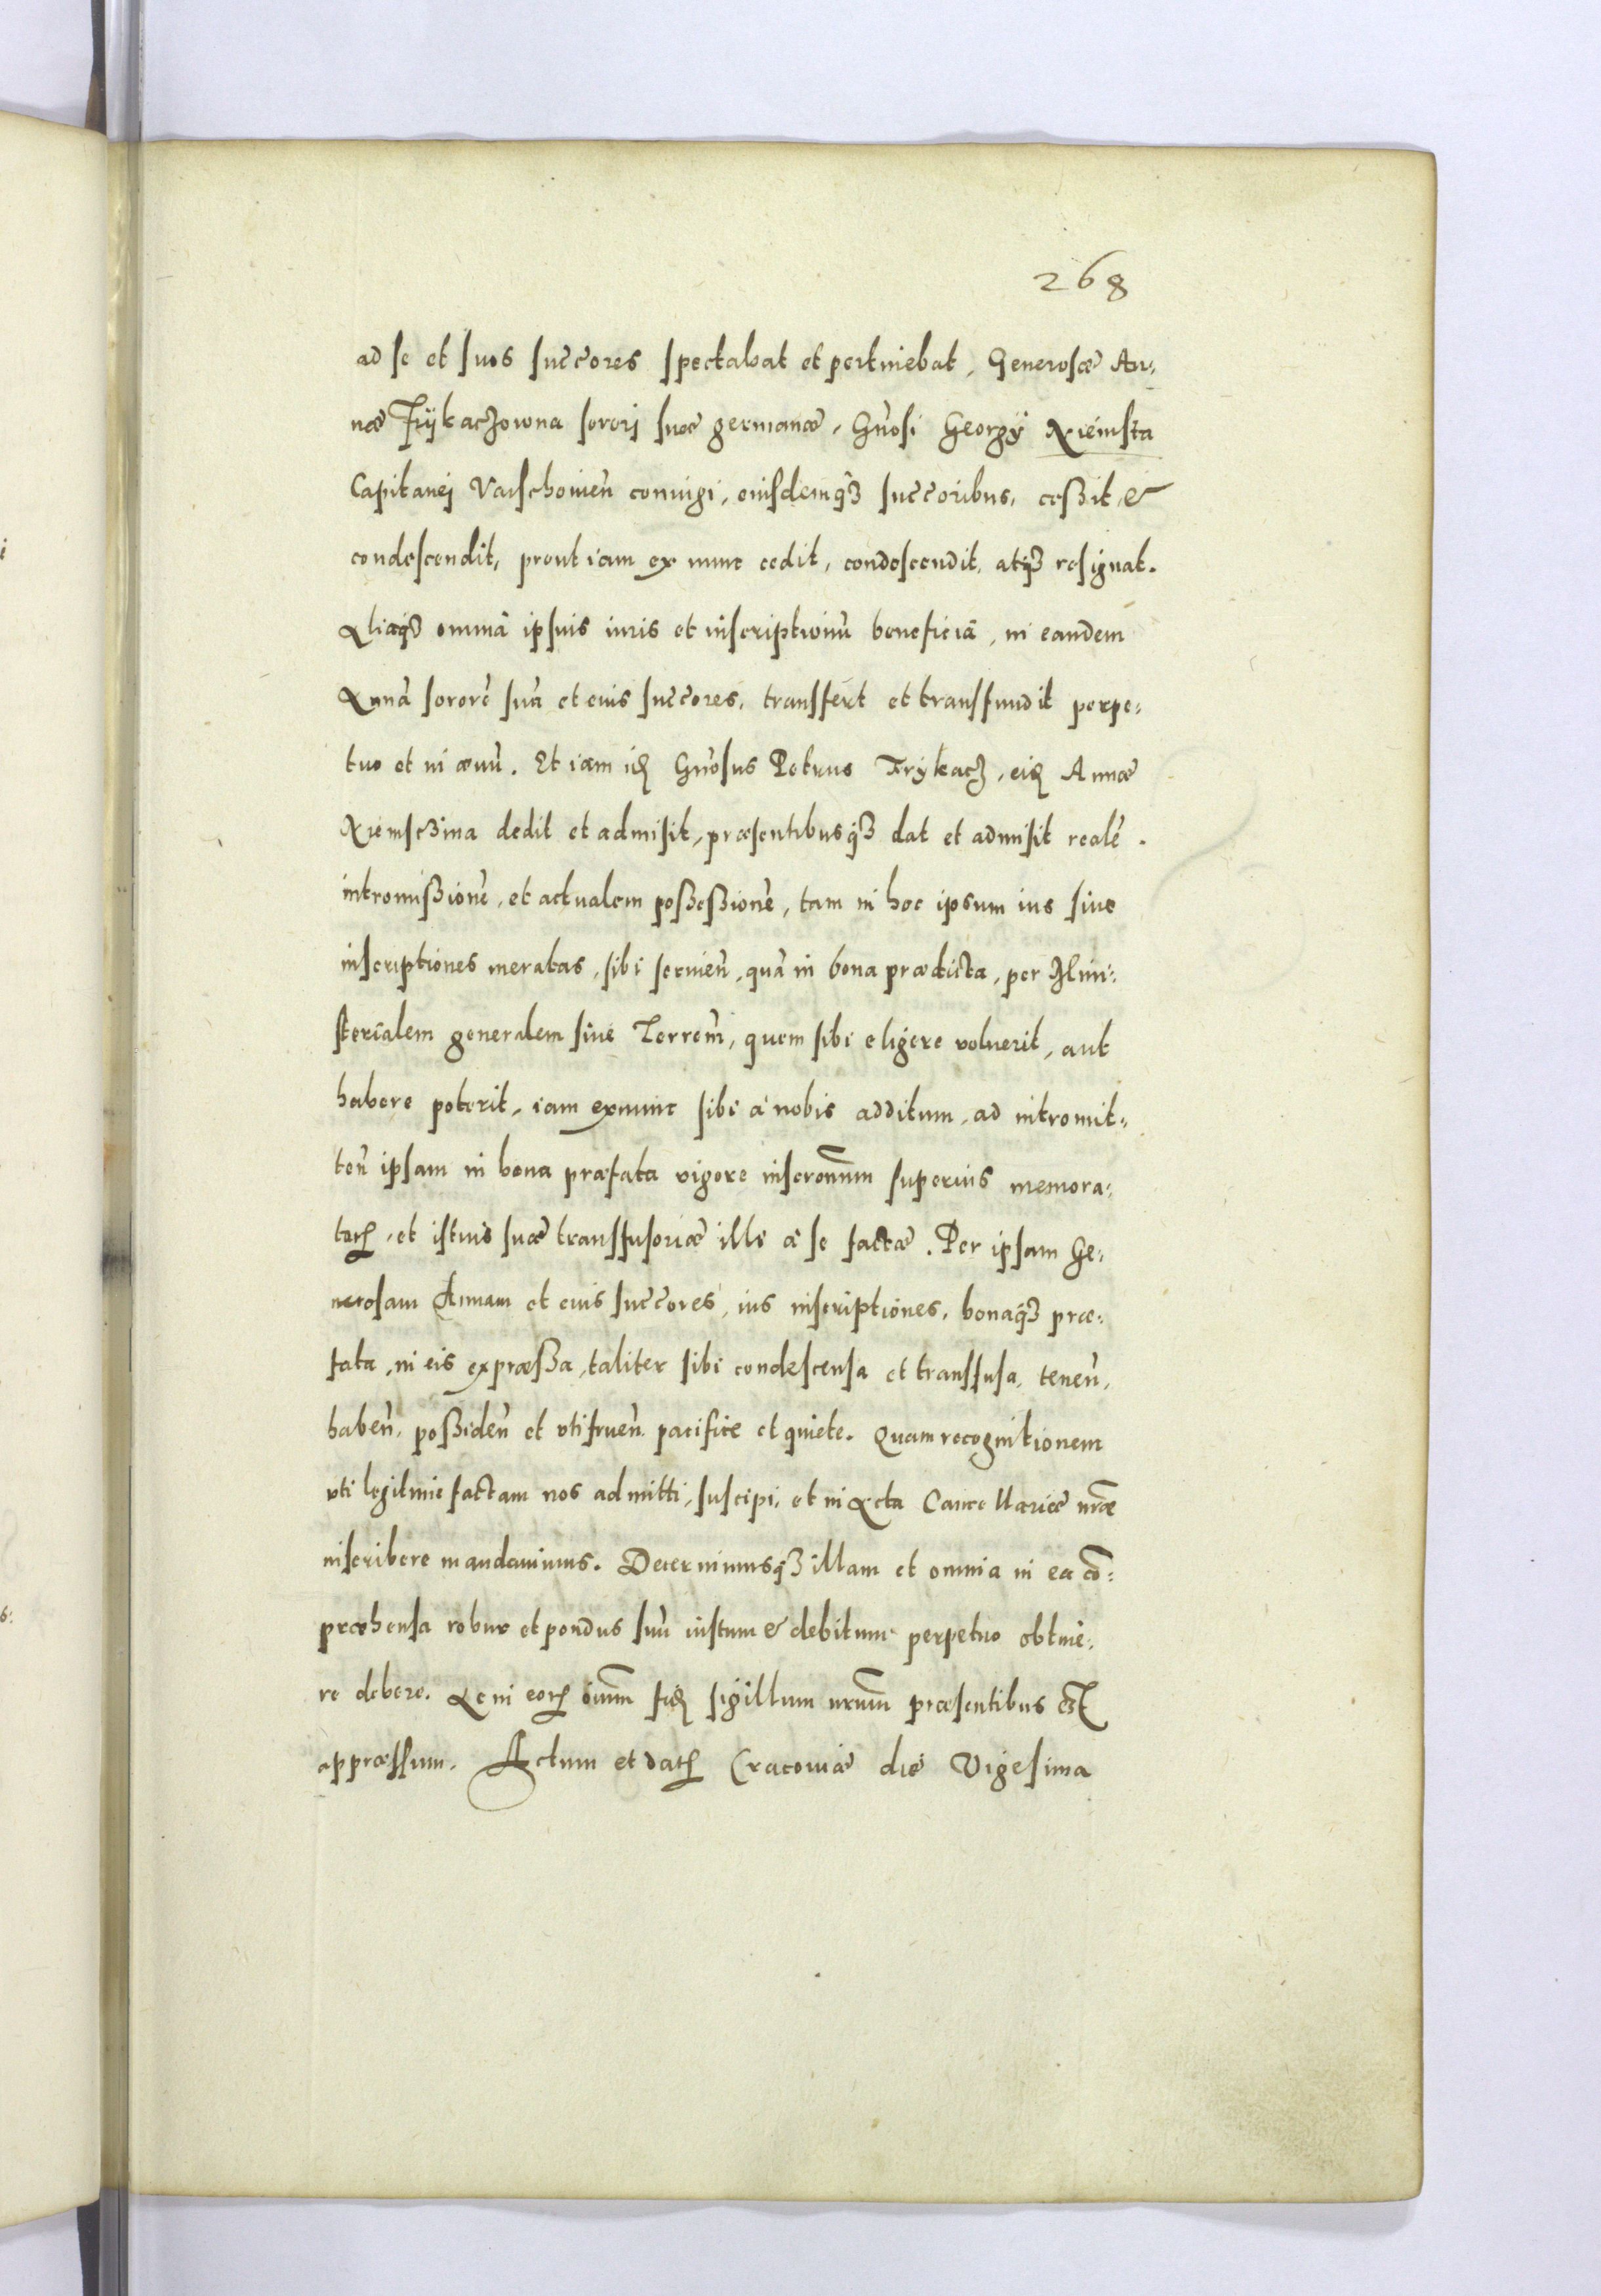 268
ad se et suos succores spectabat et pertinebat, Generosæ An:
næ Frÿkaczowna sorori suæ germanæ, Gnosi Georgÿ Niemsta
Capitanei Varschouien coniugi, eiusdemqʒ succoribus, ceßit, &
condescendit, prout iam ex nunc cedit, condescendit, atqʒ resignat.
Aliaqʒ omnia ipsius iuris et inscriptionū beneficia, in eandem
Annā sororē suā et eius succores, transfert et transfundit perpe:
tuo et in æuū. Et iam idē Gnosus Petrus Frÿkacz, eidē Annæ
Niemsczina dedit et admisit, præsentibusqʒ dat et admisit realē
intromißionē, et actualem poßeßionē, tam in hoc ipsum ius siue
inscriptiones meratas, sibi seruien, quā in bona prædicta, per Mini:
sterialem generalem siue Terrem, quem sibi eligere voluerit, aut
habere poterit, iam exnunc sibi a nobis additum, ad intromit:
ten ipsam in bona præfata vigore inscronum superius memora:
tarꝝ, et istius suæ transfusoriæ illi a se factæ. Per ipsam Ge:
nerosam Annam et eius succores, ius inscriptiones, bonaqʒ præ:
fata, in eis expræßa, taliter sibi condescensa et transfusa, tenen,
haben, poßiden et vtifruen pacifice et quiete. Quam recognitionem
vti legitimie factam nos admitti, suscipi, et in Acta Cancellariæ nræ
inscribere mandauimus. Decernimusqʒ illam et omnia in ea cō:
præhensa robur et pondus suū iustum & debitum perpetuo obtine:
re debere. Ac in eorꝝ oīum fidē sigillum nrum præsentibus est
appræssum. Actum et datꝝ Cracouiæ die Vigesima